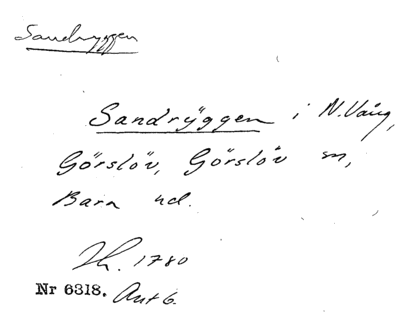 Sandryggen
Sandrÿggen i N. Vång,
Görslöv, Görslöv sn,
Bara hd.
Lh. 1780
Nr 6318. Akt 6.